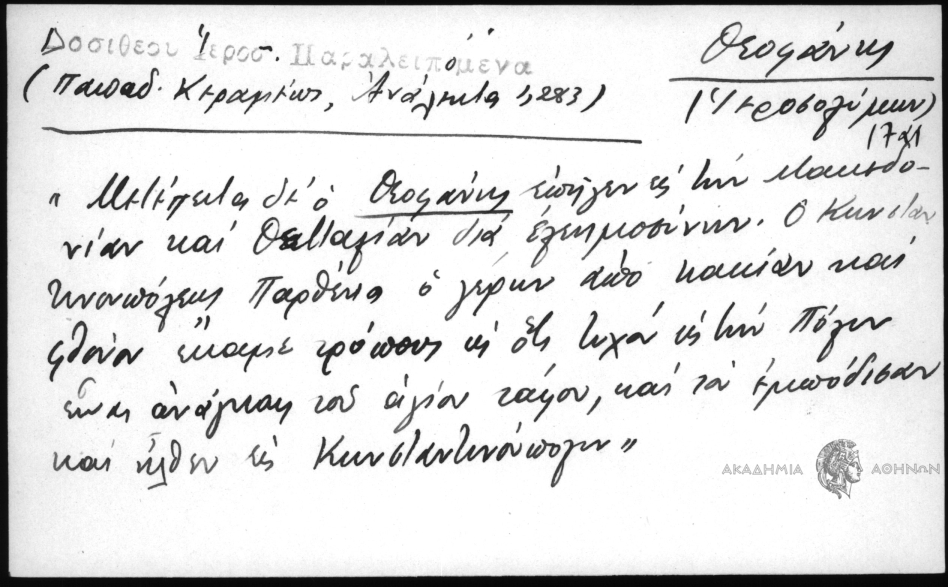 Δοσιθέου Ἱεροσ. Παραλειπόμενα
(Παπαδ. Κεραμέως, Ἀνάλεκτα 1,283)
Θεοφάνης
(Ἱεροσολύμων)
"Μετέπειτα δέ ὁ Θεοφάνης ἐπῆγεν εἰς τήν Μακεδο-
νίαν καί Θετταλίαν διά ἐλεημοσύνην. Ὁ Κωνσταν
τινουπόλεως Παρθένιος ὁ γέρων ἀπό κακίαν καί
φθόνον ἔκαμε τρόπους εἰς ὅτι τυχόν εἰς τήν Πόλιν
εἶναι ἀνάγκαι τοῦ ἁγίου τάφου, καί τόν ἐμπόδισαν
καί ἦλθεν εἰς Κωνσταντινούπολιν"
ΑΚΑΔΗΜΙΑ ΑΘΗΝΩΝ